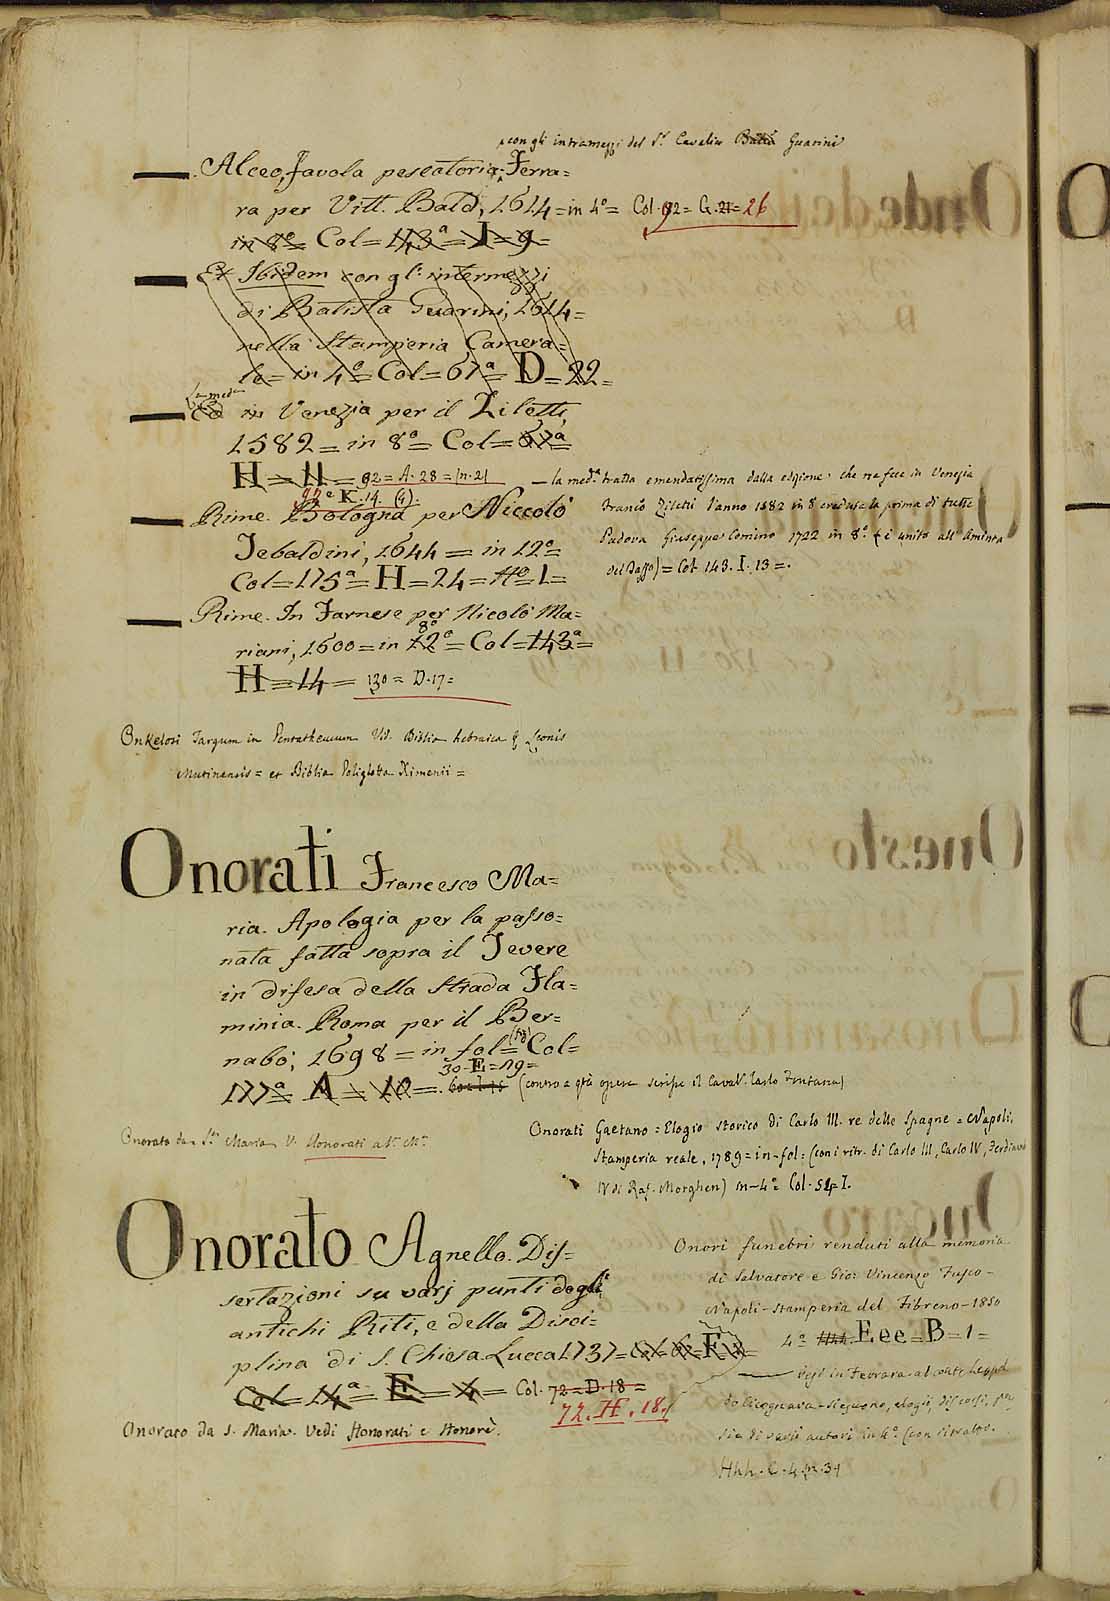 con gli intramezzi del S.r Cavalier Batta Guarini
Alceo, favola pescatoria. Ferra=
ra per Vitt. Bald, 1614 = in 4º = Col. 92 = G. 21 = 26
in 8º = Col = 143ª = I = 9 =
Et Ibidem con gl' intermezzi
di Batista Guarini, 1614 =
nella Stamperia Camera=
le = in 4º = Col = 67ª = D = 22 =
La med.
in Venezia per il Ziletti,
1582 = in 8º = Col = 67ª
H = 11 = 92 = A. 28 = (n. 2)
— la med.ª tratta emendatissima dalla edizione che ne fece in Venezia
Franc.º Ziletti l'anno 1582 in 8 credula la prima di tutte
Padova Giuseppe Comino 1722 in 8º (è unito all' Aminta
del Tasso) = Col. 143. I. 13 = .
92 = K. 14. (4).
Rime. Bologna per Niccolò
Tebaldini, 1644 = in 12º =
Col = 175ª = H = 24 = Nº 1 =
Rime. In Farnese per Nicolò Ma=
8º
riani, 1600 = in 12º = Col = 143ª =
H = 14 = 130 = D. 17 =
Onkelosi Targum in Pentatheucum Vid. Biblia hebraica Leonis
Mutinensis = et Biblia Poliglotta Ximenii =
Onorati Francesco Ma=
ria. Apologia per la passo=
nata fatta sopra il Tevere
in difesa della Strada Fla=
minia. Roma per il Ber=
nabò; 1698 = in fol = (fig) Col =
30 = E = 19 =
177ª = A = 10 = (contro a qta opera scrisse il Caval.r Carlo Fontana)
Onorato da S.ta Maria V. Honorati a S.ta M.ª
Onorati Gaetano = Elogio storico di Carlo III. re delle Spagne = Napoli,
Stamperia reale, 1789 = in-fol: (con i ritr. di Carlo III, Carlo IV, Ferdinando
IV di Raf. Morghen) in-4º = Col. 54 I.
Onorato Agnello. Dis=
sertazioni su varj punti degli
antichi Riti, e della Disci=
plina di S. Chiesa. Lucca 1737 = Col = 6 = F
Col = 14ª = E = 4 = Col. 72 = D. 18 =
72. H. 18.
Onorato da S. Maria. Vedi Honorati e Honorè.
Onori funebri renduti alla memoria
di Salvatore e Gio: Vincenzo Fusco -
Napoli - Stamperia del Fibreno - 1850
4º = E.ee = B = 1 =
— resi in Ferrara al conte Leopol
do Cicognara - elogii, discorsi,
di varii autori in 4º. (con ritratto.
Hhh. C. 4. n. 31